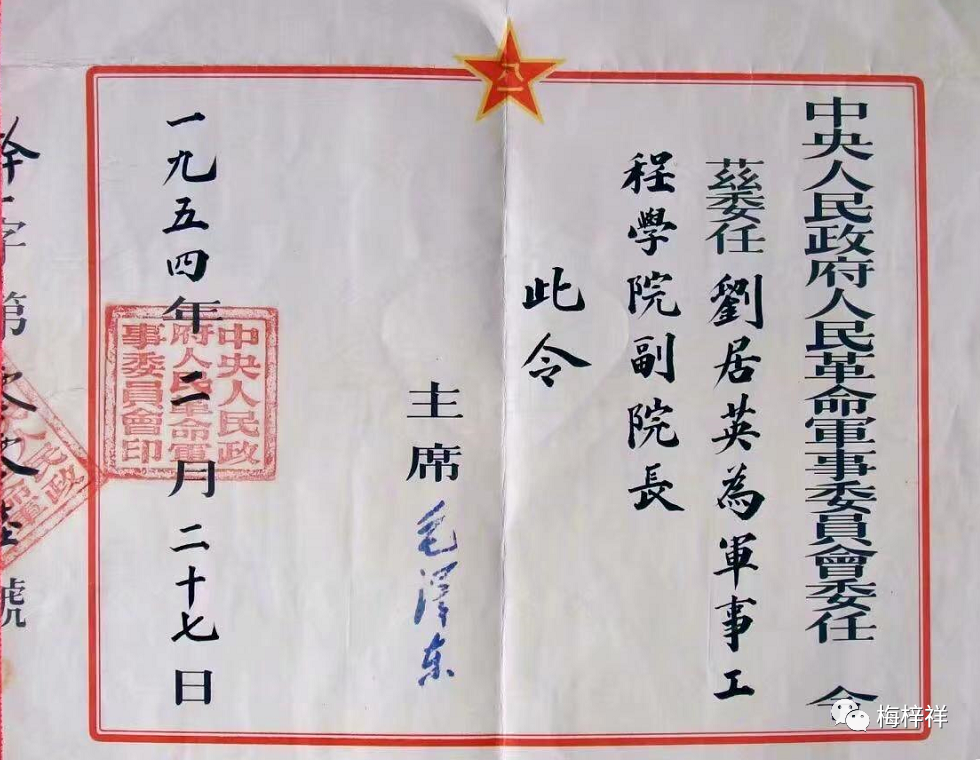 中央人民政府人民革命軍事委員會委任令
茲委任劉居英為軍事工
程學院副院長
此令
主席毛澤东
一九五四年二月二十七日
中央人民政
府人民革命軍
事委員會印
八一
字第
號
梅梓祥